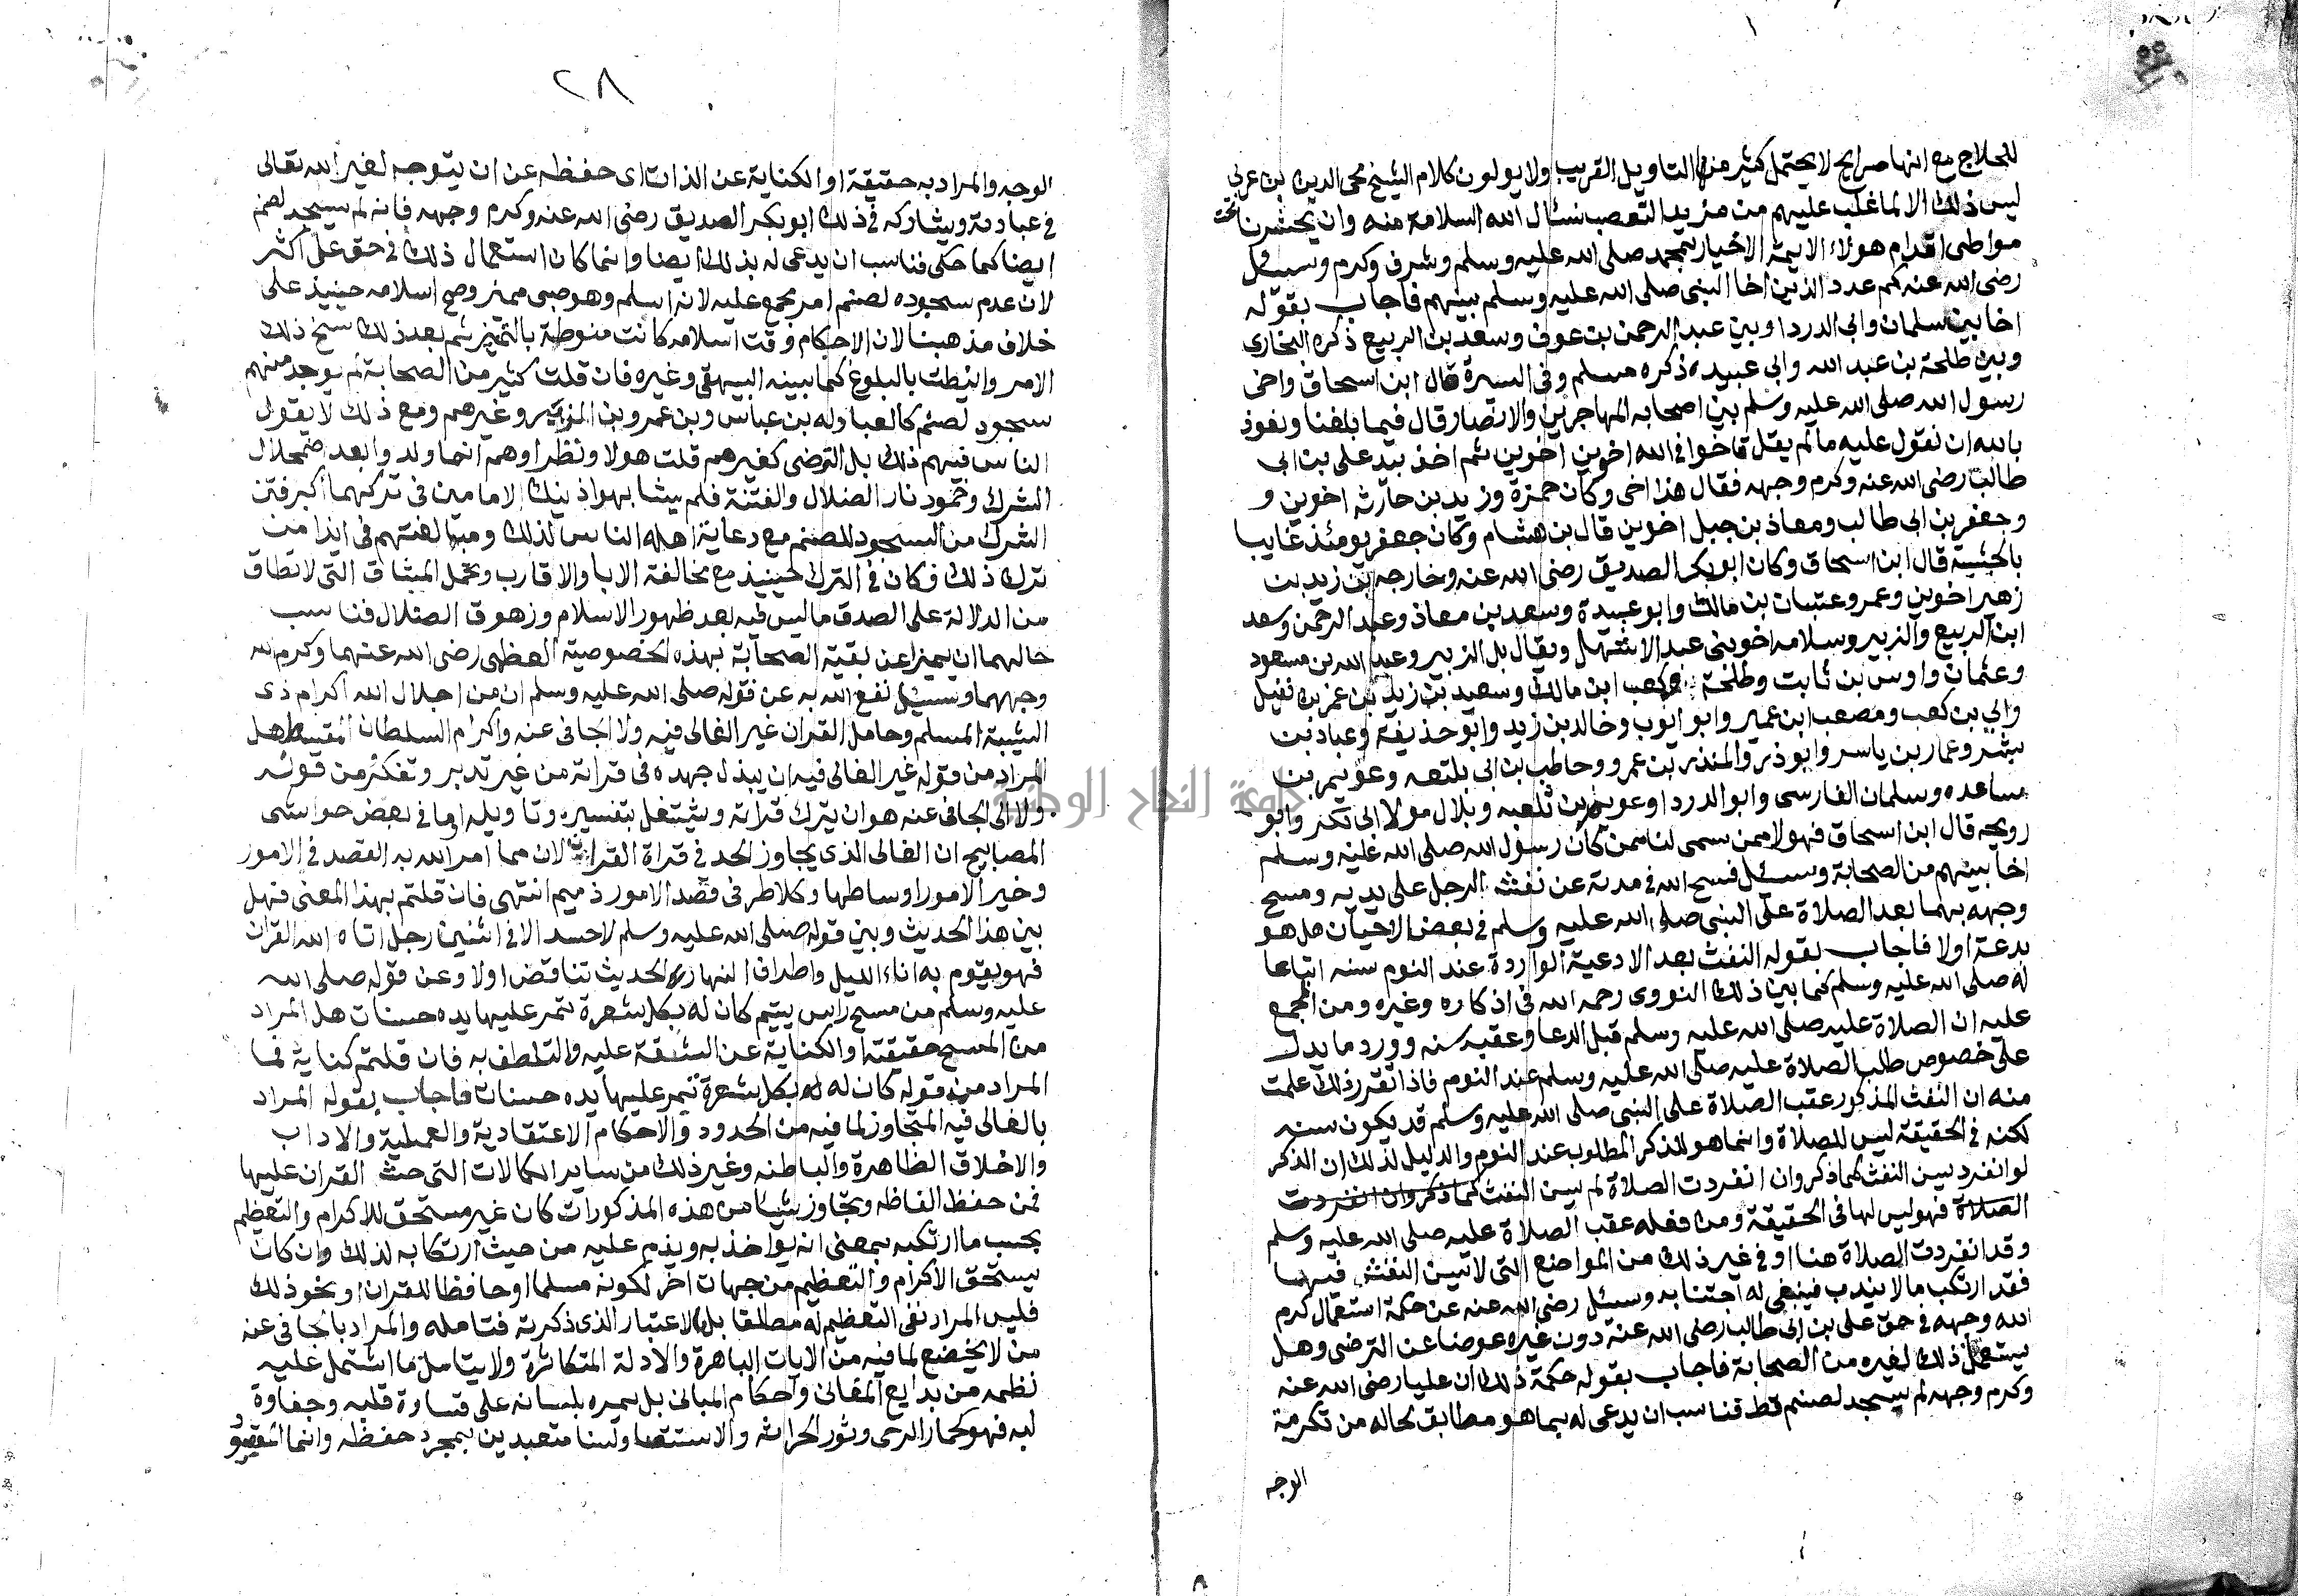 للحلاج مع انها صرايح لا يحتمل كثير منها التاويل القريب ولا يولون كلام الشيخ محي الدين بن عربي
ليس ذلك الا لما غلب عليهم من مزيد التعصب نسئال الله السلامة منه وان يحشرنا تحت
مواطي اقدام هولاء الايمة الاخيار بمحمد صلى الله عليه وسلم وشرف وكرم وسيئل
رضى الله عنه كم عدد الذين اخا النبى صلى الله عليه وسلم بينهم فاجاب بقوله
اخا بين سلمان وابي الدردا وبين عبد الرحمن بن عوف وسعد بن الربيع ذكره البخاري
وبين طلحة بن عبد الله وابي عبيده ذكره مسلم وفي السيرة قال ابن اسحاق واخى
رسول الله صلى الله عليه وسلم بين اصحابه المهاجرين والانصار قال فيما بلغنا ونعوذ
بالله ان نقول عليه ما لم يقل تاخوا في الله اخوين اخوين ثم اخذ بيد على بن ابي
طالب رضى الله عنه وكرم وجهه فقال هذا اخى وكان حمزة وزيد بن حارثه اخوين و
وجعفر بن ابى طالب ومعاذ بن جبل اخوين قال بن هشام وكان جعفر يومئذ غايبا
بالحبشية قال ابن اسحاق وكان ابو بكر الصديق رضى الله عنه وخارجه بن زيد بن
زهير اخوين وعمر وعتبان بن مالك وابو عبيدة وسعد بن معاذ وعبد الرحمن وسعد
ابن الربيع والزبير وسلامه اخوبنى عبد الاشهل ويقال بل الزبير وعبد الله بن مسعود
وعثمان واوس بن ثابت وطلحة وكعب ابن مالك وسعيد بن زيد بن عمر بن نفيل
وابي بن كعب ومصعب ابن عمير وابو ايوب وخالد بن زيد وابو حذيفة وعباد بن
بشر وعمار بن ياسر وابو ذر والمنذر بن عمرو وحاطب بن ابى بلتعه وعويم بن
ساعده وسلمان الفارسى وابو الدردا وعويمر بن ثعلبه وبلال مولا ابى بكر وابو
رويحه قال ابن اسحاق فهولا ممن سمى لنا ممن كان رسول الله صلى الله عليه وسلم
اخا بينهم من الصحابة وسئل فسح الله في مدته عن نفث الرجل على يديه ومسح
وجهه بهما بعد الصلاة على النبى صلى الله عليه وسلم في بعض الاحيان هل هو
بدعة اولا فاجاب بقوله النفث بعد الادعية الواردة عند النوم سنه اتباعا
له صلى الله عليه وسلم كما بين ذلك النووى رحمه الله فى اذكاره وغيره ومن المجمع
عليه ان الصلاة عليه صلى الله عليه وسلم قبل الدعا وعقبه سنه وورد ما يدل
على خصوص طلب الصلاة عليه صلى الله عليه وسلم عند النوم فاذا تقرر ذلك علمت
منه ان النفث المذكور عقب الصلاة على النبى صلى الله عليه وسلم قد يكون سنه
لكنه في الحقيقة ليس للصلاة وانما هو للذكر المطلوب عند النوم والدليل لذلك ان الذكر
لو انفرد يسن النفث كما ذكر وان انفردت الصلاة لم يسن النفث كما ذكر وان انفردت
الصلاة فهو ليس لها في الحقيقة ومن فعله عقب الصلاة عليه صلى الله عليه وسلم
وقد انفردت الصلاة هنا او في غير ذلك من المواضع التى لا تيسن النفث فيها
فقد ارتكب ما لا يندب فينبغى له اجتنابه وسئل رضى الله عنه عن حكمة استعمال كرم
الله وجهه في حق على بن ابى طالب رضى الله عنه دون غيره عوضا عن الترضى وهل
يستعمل ذلك لغيره من الصحابة فاجاب بقوله حكمة ذلك ان عليا رضى الله عنه
وكرم وجهه لم يسجد لصنم قط فناسب ان يدعى له بما هو مطابق لحاله من تكرمة
الوجه
٢٨
الوجه والمراد به حقيقة او الكناية عن الذات اى حفظه عن ان يتوجه لغير الله تعالى
في عبادته ويشاركه في ذلك ابو بكر الصديق رضى الله عنه وكرم وجهه فانه لم يسجد لصنم
ايضا كما حكى فناسب ان يدعى له بذلك ايضا وانما كان استعمال ذلك في حق على اكثر
لان عدم سجوده لصنم امر مجمع عليه لانه اسلم وهو صبى مميز وصح اسلامه حينيذ على
خلاف مذهبنا لان الاحكام وقت اسلامه كانت منوطة بالتميز ثم بعد ذلك نسخ ذلك
الامر وانيطت بالبلوغ كما بينه البيهقى وغيره فان قلت كثير من الصحابة لم يوجد منهم
سجود لصنم كالعبادله بن عباس وبن عمر وبن الزبير وغيرهم ومع ذلك لا يقول
الناس فيهم ذلك بل الترضى كغيرهم قلت هولا ونظراوهم انما ولدوا بعد اضمحلال
الشرك وخمود نار الضلال والفتنة فلم يشابهوا ذينك الامامين فى تركهما اكبر فتن
الشرك من السجود للصنم مع دعاية اهله الناس لذلك ومبالغتهم فى ايذا من
ترك ذلك فكان في الترك حينيذ مع مخالفة الابا والاقارب وتحمل المشاق التى لا تطاق
من الدلالة على الصدق ما ليس فيه بعد ظهور الاسلام وزهوق الضلال فناسب
حالهما ان يميزا عن بقية الصحابة بهذه الخصوصية العظمى رضى الله عنهما وكرم الله
وجههما وسئيل نفع الله به عن قوله صلى الله عليه وسلم ان من اجلال الله اكرام ذى
الشيبة المسلم وحامل القران غير الغالى فيه ولا الجافى عنه واكرام السلطان المقسط هل
المراد من قوله غير الغالى فيه ان يبذل جهده فى قراته من غير تدبر وتفكر من قوله
ولا الى الجافى عنه هو ان يترك قراته ويشتغل بتفسيره وتاويله او ما فى بعض حواشى
المصابيح ان الغالى الذى يجاوز الحد في قراة القران لان مما امر الله به القصد في الامور
وخير الامور اوساطها وكلا طرفى قصد الامور ذميم انتهى فان قلتم بهذا المعنى فهل
بين هذا الحديث وبين قوله صلى الله عليه وسلم لا حسد الا فى اثنين رجل اتاه الله القران
فهو يقوم به اناء الليل واطراف النهار الحديث تناقض اولا وعن قوله صلى الله
عليه وسلم من مسح راس يتيم كان له بكل شعرة تمر عليها يده حسنات هل المراد
من المسح حقيقته او الكناية عن الشفقة عليه والتلطف به فان قلتم كناية فما
المراد من قوله كان له بكل شعرة تمر عليها يده حسنات فاجاب بقوله المراد
بالغالى فيه المتجاوز لما فيه من الحدود والاحكام الاعتقادية والعملية والاداب
والاخلاق الظاهرة والباطنه وغير ذلك من ساير الكمالات التى حث القران عليها
فمن حفظ الفاظه وتجاوز شيا من هذه المذكورات كان غير مستحق للاكرام والتعظيم
بحسب ما ارتكبه بمعنى انه يواخذ به ويذم عليه من حيث ارتكابه لذلك وان كان
يستحق الاكرام والتعظيم من جهات اخر لكونه مسلما او حافظا للقران او نحو ذلك
فليس المراد نفى التعظيم له مطلقا بل بالاعتبار الذى ذكرته فتامله والمراد بالجافى عنه
من لا يخضع لما فيه من الايات الباهرة والادلة المتكاثرة ولا يتامل ما اشتمل عليه
نظمه من بدايع المعانى واحكام المبانى بل يمره بلسانه على قساوة قلبه وجفاوة
لبه فهو كحمار الرحى وثور الحراثه والاستقصا ولسنا متعبدين بمجرد حفظه وانما المقصود
جامعة النجاح الوطنية